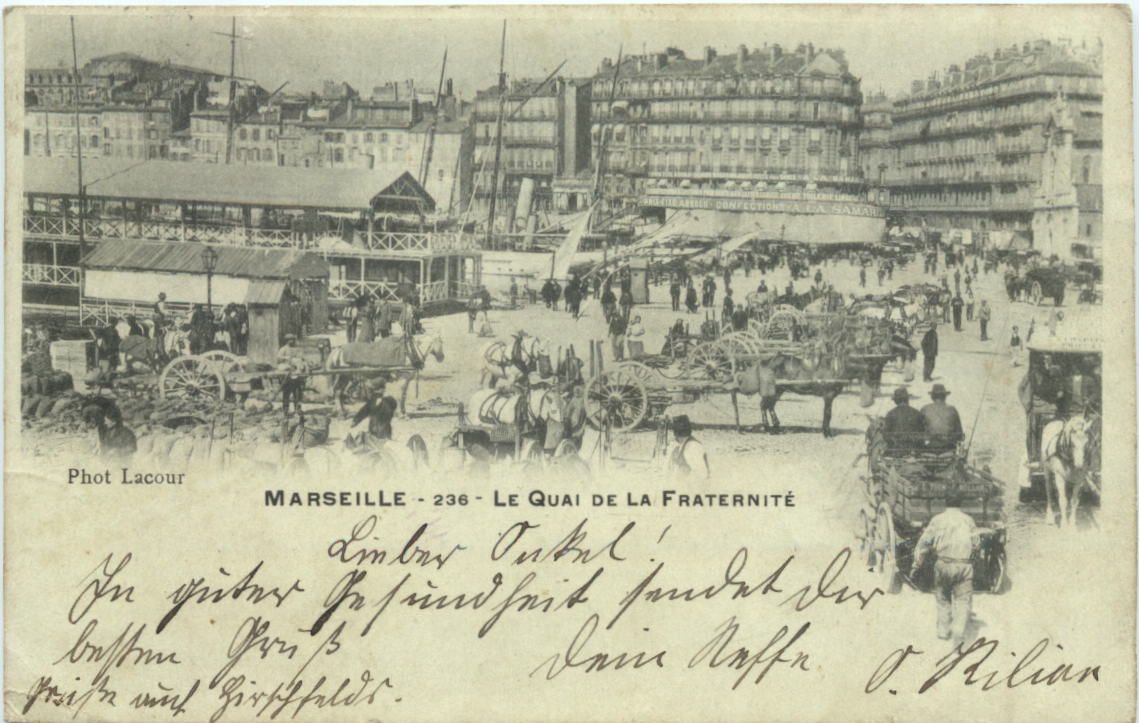 CONFECTIONS A LA SAMAR
Phot Lacour
MARSEILLE - 236 - LE QUAI DE LA FRATERNITÉ
Lieber Onkel!
In guter Gesundheit sendet Dir
besten Gruß Dein Neffe O. Kilian
Grüße auch Hirschfelds.